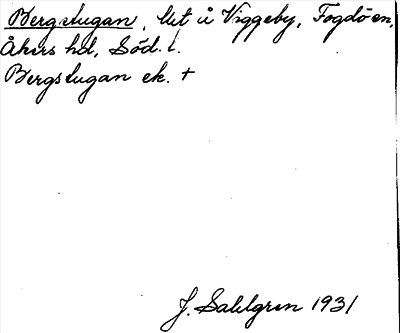 Bergstugan, lht å Viggeby, Fogdö sn,
Åkers hd, Söd. l.
Bergstugan ek. +
J. Sahlgren 1931